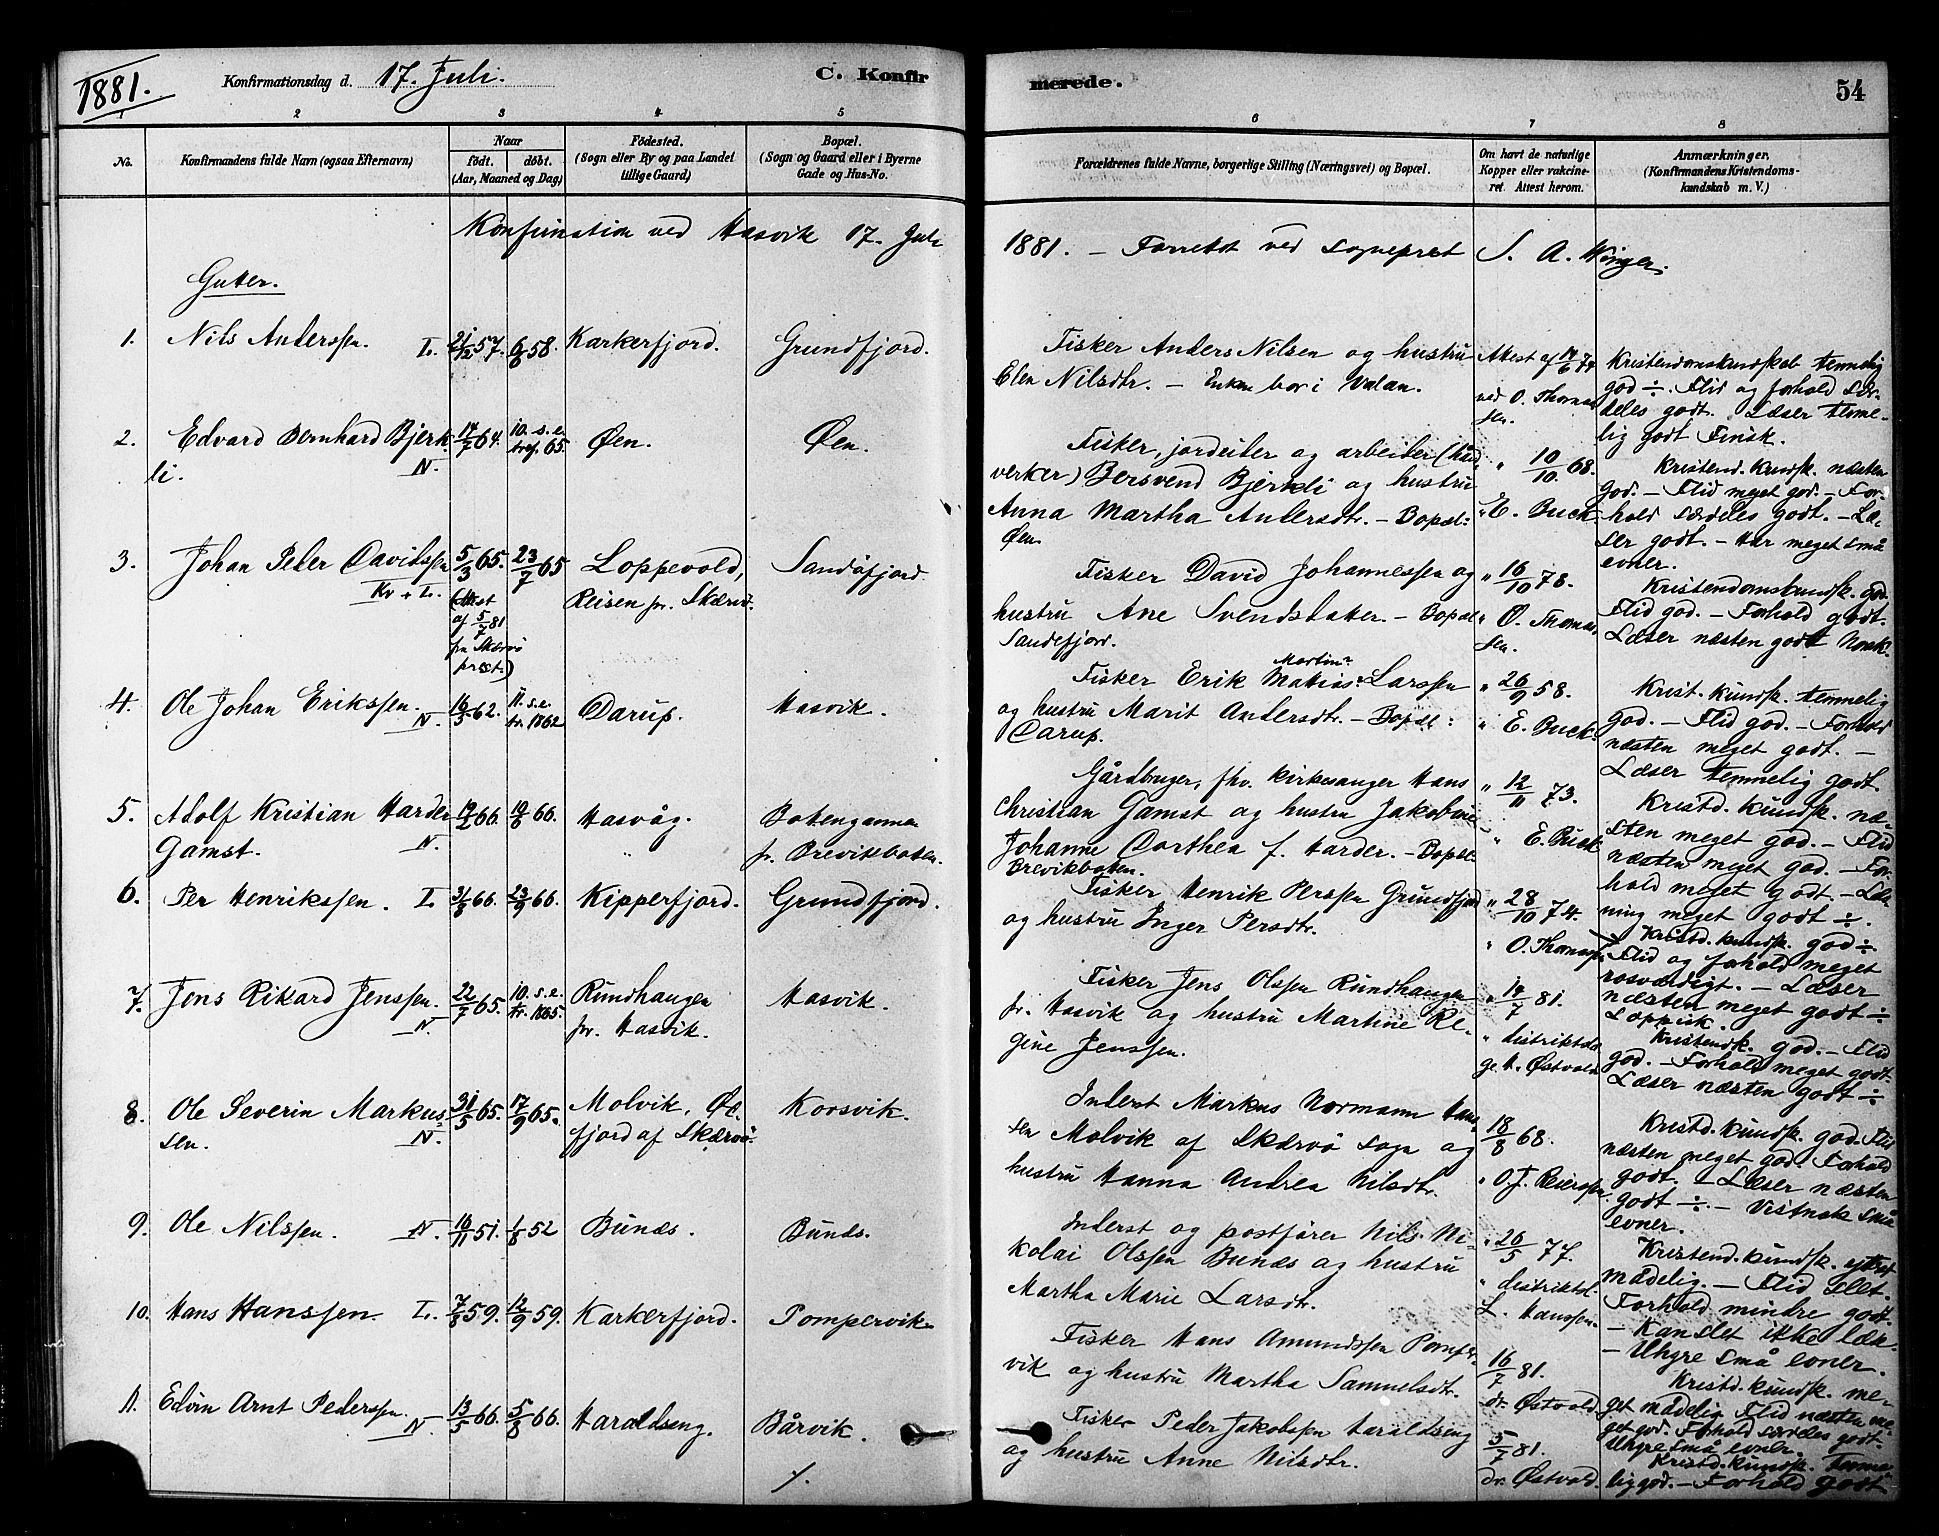 1881.
Konfirmationsdag d. 17. Juli.
C. Konfir
merede.
54
2 3 4 5
6 7 8
No.
Konfirmandens fulde Navn (ogsaa Efternavn)
Naar
født. døbt.
(Aar, Maaned og Dag)
Fødested.
(Sogn eller By og paa Landet
tillige Gaard)
Bopæl.
(Sogn og Gaard eller i Byerne
Gade og Hus-No.
Forældrenes fulde Navne, borgerlige Stilling (Næringsvei) og Bopæl.
Om havt de naturlige
Kopper eller vakcine-
ret. Attest herom.
Anmærkninger.
(Konfirmandens Kristendoms-
kundskab m. V.)
Konfirmation ved Hasvik 17. Juli
1881. – Forrettet ved sognepræst S. A. Winger.
Gutter.
1. Nils Anderssen. L. 21/12 57. 6/8 58. Karkerfjord. Grundfjord.
Fisker Anders Nilsen og hustru
Elen Nilsdtr. – Enken bor i Valan.
Attest af 14/6 74
ved O. Thomas
sen.
Kristendomskundskab temmelig
god ÷. Flid og forhold sær-
deles godt. Læser temme-
lig godt Finsk.
2. Edvard Bernhard Bjerk-
li. N. 14/7 64. 10. s. e.
tref. 65. Øen. Øen.
Fisker, jordeier og arbeider (hånd
verker) Bersvend Bjerkli og hustru
Anna Martha Andersdtr. – Bopæl:
Øen.
" 10/10 68.
" E. Buck
Kristend. kundsk. næsten
god. – Flid meget god. – For-
hold særdeles godt. – Læ-
ser godt. – Har meget små
evner.
3. Johan Peder Davidssen
Kv + L. 5/3 65. 23/7 65 Loppevold,
Reisen pr. Skærvø. Sandøfjord.
(Attest
af 5/7 81
fra Skærvø
præst.)
Fisker David Johannessen og
hustru Ane Svendsdatter. – Bopæl
Sandefjord.
" 16/10 78.
" O. Thomas
sen.
Kristendomskundsk. god
Flid god. – Forhold godt.
Læser næsten godt Norsk.
4. Ole Johan Erikssen. N. 16/3 62. 11. s. e.
tr. 1862 Darup. Hasvik.
Martin
Fisker Erik Mathias Larssen
og hustru Marit Andersdtr. – Bopæl:
Darup.
" 26/9 58.
" E. Buck
Krist. kundsk. temmelig
god. – Flid god. – Forhold
næsten meget godt. –
Læser temmelig godt.
5. Adolf Kristian Harder
Gamst. N. 19/2 66. 19/8 66. Hasvåg. Botengammen
pr. Breviksboten.
Gårdbruger, fhv. kirkesanger Hans
Christian Gamst og hustru Jakobine
Johanne Dorthea f. Harder. – Bopæl:
Brevikboten.
" 12/11 73.
" E. Buck
Kristd. kundsk. næ-
sten meget god. – Flid
næsten meget god. – For-
hold meget godt. – Læs-
ning meget godt ÷.
6. Per Henrikssen. L. 31/8 66. 23/9 66. Kipperfjord. Grundfjord.
Fisker Henrik Perssen Grundfjord
og hustru Inger Persdtr.
" 28/10 74.
" O. Thomassen
Kristd. kundsk. god ÷.
Flid og forhold meget
rosværdigt. – Læser
næsten meget godt ÷
Lappisk.
7. Jens Rikard Jenssen. N 22/7 65. 10. s. e.
tr. 1865. Rundhaugen
pr. Hasvik. Hasvik.
Fisker Jens Olssen Rundhaugen
pr. Hasvik og hustru Martine Re-
gine Jenssen.
" 14/7 81.
" distriktslæ
ge H. Østvold
Kristendk. god. – Flid
god. – Forhold meget godt.
Læser næsten godt ÷
8. Ole Severin Markus-
sen. N. 31/5 65. 17/9 65. Molvik, Øx-
fjord af Skærvø. Korsvik.
Inderst Markus Normann Hans-
sen Molvik af Skærvø sogn og
hustru Hanna Andrea Nilsdtr.
18/8 68.
" O. J. Reiersen
Kristd. kundsk. god. Flid
næsten meget god. Forhold
godt. – Læser næsten
godt ÷. – Vistnok små
evner.
9. Ole Nilssen. N. 16/11 51. 1/8 52 Bunæs. Bunæs.
Inderst og postfører Nils Ni-
kolai Olssen Bunæs og hustru
Martha Marie Larsdtr.
" 26/5 77.
" distriktsl.
L. Hanssen.
Kristend. kundsk. yderst
mådelig. – Flid slet.
Forhold mindre godt
– Kan slet ikke læse.
– Uhyre små evner.
10. Hans Hanssen. L. 7/8 59. 12/9 59. Karkerfjord. Pompervik.
Fisker Hans Amundssen Pomper-
vik og hustru Martha Samuelsdtr.
16/7 81.
dr. Østvold
Kristd. kundsk. me-
get mådelig Flid næsten me-
get god. Forhold særdeles godt.
Uhyre små evner.
11. Edvin Arnt Pederssen. N. 13/5 66. 5/8 66. Haraldseng. Bårvik.
Fisker Peder Jakobssen Haraldseng
og hustru Anne Nilsdtr.
5/7 81.
dr. Østvold.
Kristd. kundsk. temme-
lig god. – Forhold godt